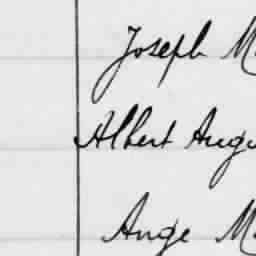 Joseph M
Albert Augu
Ange M